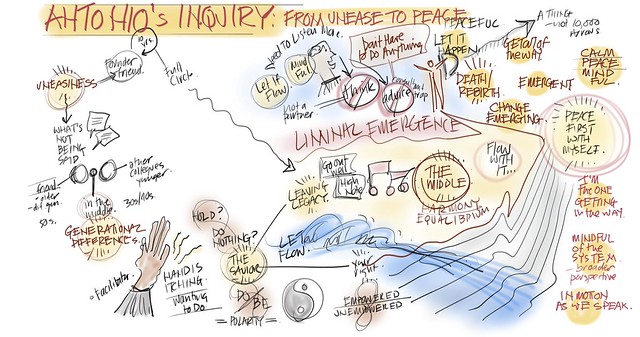 ANTONIO'S INQUIRY: FROM UNEASE TO PEACE
10 yrs.
Founder
Friend.
UNEASINESS
Full
Circle
WHAT'S
NOT
BEING
SAID
other
colleagues
younger.
friend
older
diff gen.
50s.
in the
middle.
30s/40s.
GENERATIONAL
DIFFERENCES.
Facilitator.
HAND IS
ITCHING
Wanting
to Do
HOLD?
DO
NOTHING?
THE
SAVIOR
DO
BE
POLARITY
Need to Listen More.
Let it
Flow
Mind
Ful
not a
partner
think
advice
consultant
trap
Don't Have
to Do Anything
LIMINAL EMERGENCE
LEAVING
LEGACY.
Go out
well
High
Note
THE
MIDDLE
HARMONY
EQUILIBRIUM
LET
FLOW.
EMPOWERED
UNEMPOWERED
PEACEFUL
LET IT
HAPPEN.
DEATH
REBIRTH
A THING
not 10,000
GET OUT OF
THE WAY.
EMERGENT
CHANGE
EMERGING
FLOW
WITH
IT...
CALM
PEACE
MIND
FUL.
PEACE
FIRST
WITH
MYSELF.
I'M
THE ONE
GETTING
IN THE WAY.
MINDFUL
OF THE
SYSTEM
broader
perspective
IN MOTION
AS WE SPEAK.